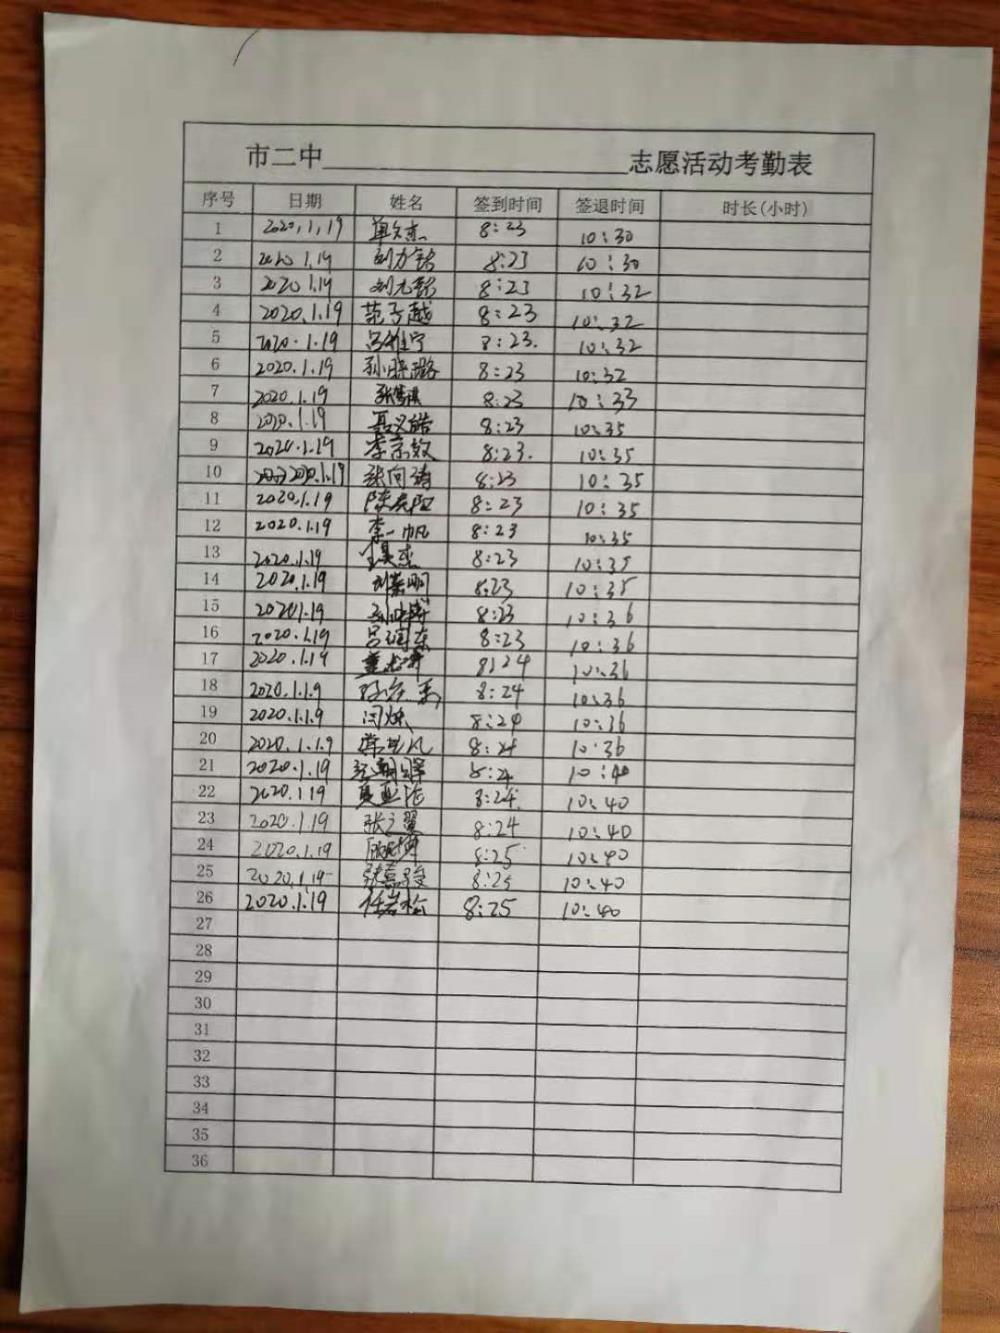 市二中 志愿活动考勤表
序号 日期 姓名 签到时间 签退时间 时长(小时)
1 2020,1,19 8:23 10:30
2 2020 1.19 8:23 10:30
3 2020 1.19 8:23 10:32
4 2020.1.19 范子越 8:23 10:32
5 2020.1.19 吕雅宁 8:23. 10:32
6 2020.1.19 孙晓璐 8:23 10:32
7 2020.1.19 8:23 10:33
8 2020.1.19 聂义皓 8:23 10:35
9 2020.1.19 李京效 8:23. 10:35
10 2020.1.19 张向涛 8:23 10:35
11 2020.1.19 8:23 10:35
12 2020.1.19 李一帆 8:23 10:35
13 2020.1.19 8:23 10:35
14 2020.1.19 8:23 10:35
15 20201.19 8:23 10:36
16 2020.1.19 吕润东 8:23 10:36
17 2020.1.19 8:24 10:36
18 2020.1.1.9 8:24 10:36
19 2020.1.1.9 闫焕 8:24 10:36
20 2020.1.1.9 8:24 10:36
21 2020.1.19 8:24 10:40
22 2020.1 19 8:24. 10:40
23 2020.1.19 张之翼 8:24 10:40
24 2020.1.19 8:25 10:40
25 2020.1.19 8:25 10:40
26 2020.1.19 任岩松 8:25 10:40
27
28
29
30
31
32
33
34
35
36